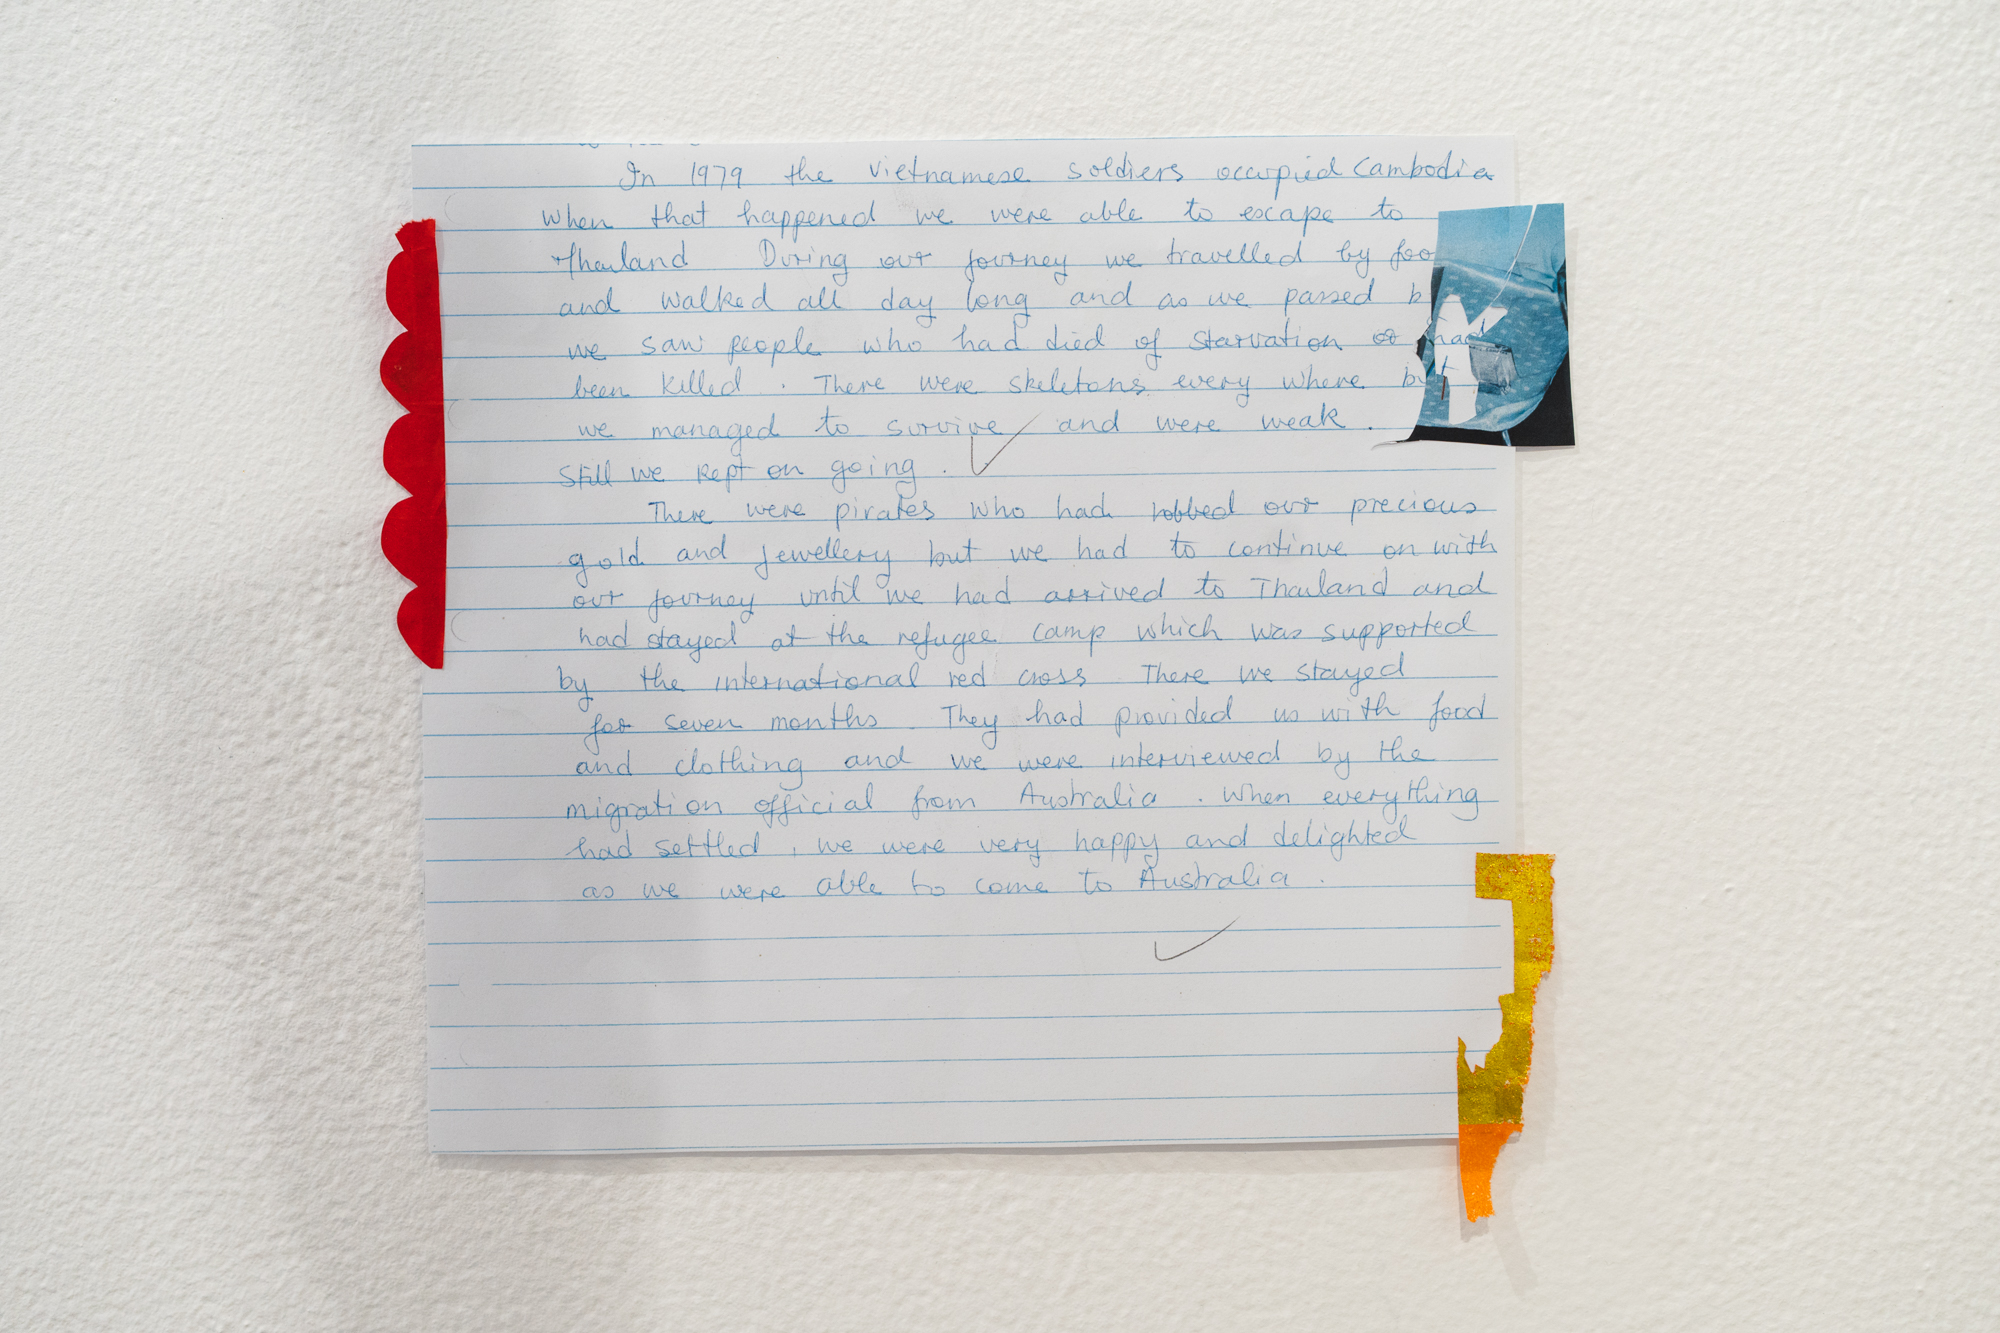 In 1979 the Vietnamese soldiers occupied Cambodia
when that happened we were able to escape to
Thailand During our journey we travelled by foo
and walked all day long and as we passed b
we saw people who had died of starvation or had
been killed . There were skeletons every where but
we managed to survive and were weak .
still we kept on going .
There were pirates who had robbed our precious
gold and jewellery but we had to continue on with
our journey until we had arrived to Thailand and
had stayed at the refugee camp which was supported
by the international red cross There we stayed
for seven months . They had provided us with food
and clothing and we were interviewed by the
migration official from Australia . When everything
had settled , we were very happy and delighted
as we were able to come to Australia .